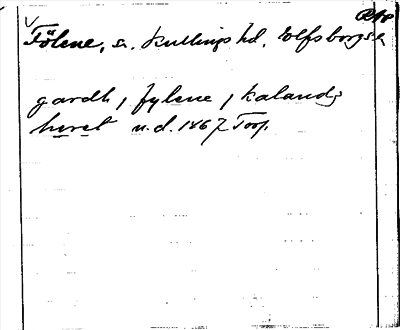 Fölene, sn. Kullings hd. Elfsborgs l.
gardh / fylene / kalands
heret n.d. 1467 Torp.